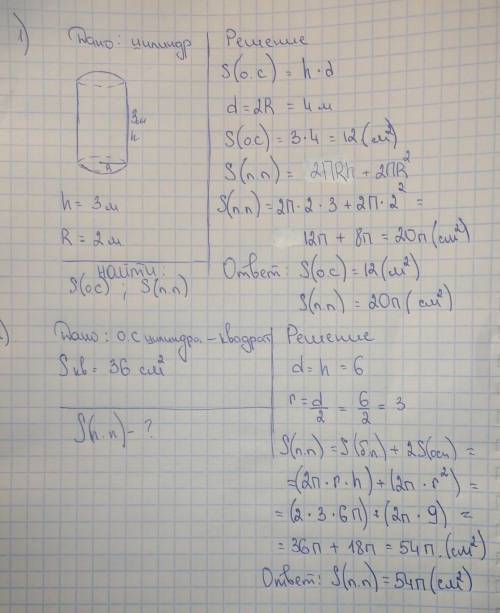 1) Дано: цилиндр
3м
h
R
h = 3 м
R = 2 м
найти:
S(о.с) ; S(п.п)
Решение
S(о.с) = h · d
d = 2R = 4 м
S(ос) = 3 · 4 = 12 (м²)
S(п.п) = 2ПRh + 2ПR²
S(п.п) = 2п · 2 · 3 + 2п · 2² =
12п + 8п = 20п (см²)
Ответ: S(о.с) = 12 (м²)
S(п.п) = 20п (см²)
) Дано: о.с цилиндра – квадрат
Sкв = 36 см²
S(п.п) – ?
Решение
d = h = 6
r = d/2 = 6/2 = 3
S(п.п) = S(б.п) + 2S(осн) =
= (2п · r · h) + (2п · r²) =
= (2 · 3 · 6п) + (2п · 9) =
= 36п + 18п = 54п. (см²)
Ответ: S(п.п) = 54п (см²)